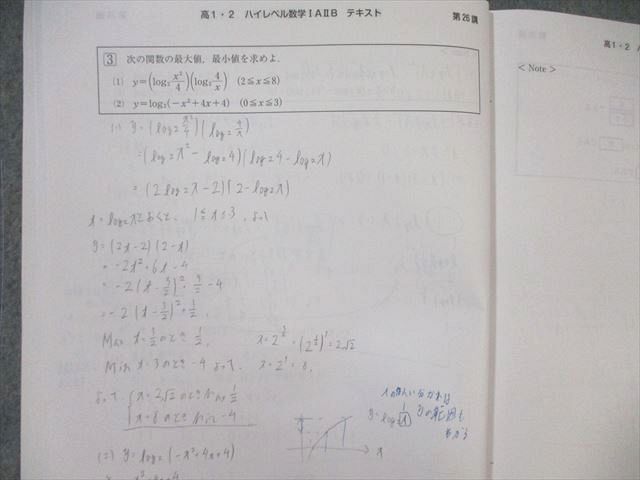 高1・2 ハイレベル数学ⅠAⅡB テキスト
第26講
3 次の関数の最大値，最小値を求めよ．
(1) y=(log₂ x²/4)(log₂ 4/x) (2≦x≦8)
(2) y=log₂(−x²+4x+4) (0≦x≦3)
(1) y=(log₂ x²/4)(log₂ 4/x)
=(log₂x² − log₂4)(log₂4 − log₂x)
=(2log₂x−2)(2−log₂x)
t=log₂xとおくと、1≦t≦3、よって
y=(2t−2)(2−t)
=−2t²+6t−4
=−2(t−3/2)²+9/2−4
=−2(t−3/2)²+1/2.
Max t=3/2のとき 1/2, x=2^(3/2)=(2^(1/2))³=2√2
Min t=3のとき −4 よって、x=2³=8,
よって、x=2√2のときMax 1/2
x=8のときMin −4
x
(2) y=log₂(−x²+4x+4)
高1・2
< Note >